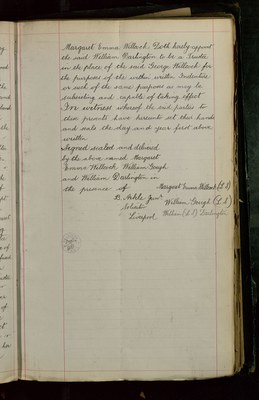 Margaret Emma Willock Doth hereby appoint
the said William Darlington to be a Trustee
in the place of the said George Willock for
the purposes of the within written Indenture
or such of the same purposes as may be
subsisting and capable of taking effect
In witness whereof the said parties to
these presents have hereunto set their hands
and seals the day and year first above
written
Signed sealed and delivered
by the above named Margaret
Emma Willock William Gough
and William Darlington in
the presence of
Margaret Emma Willock (L.S)
Junr
William Gough (L.S)
Solicitor
Liverpool
William (L.S) Darlington